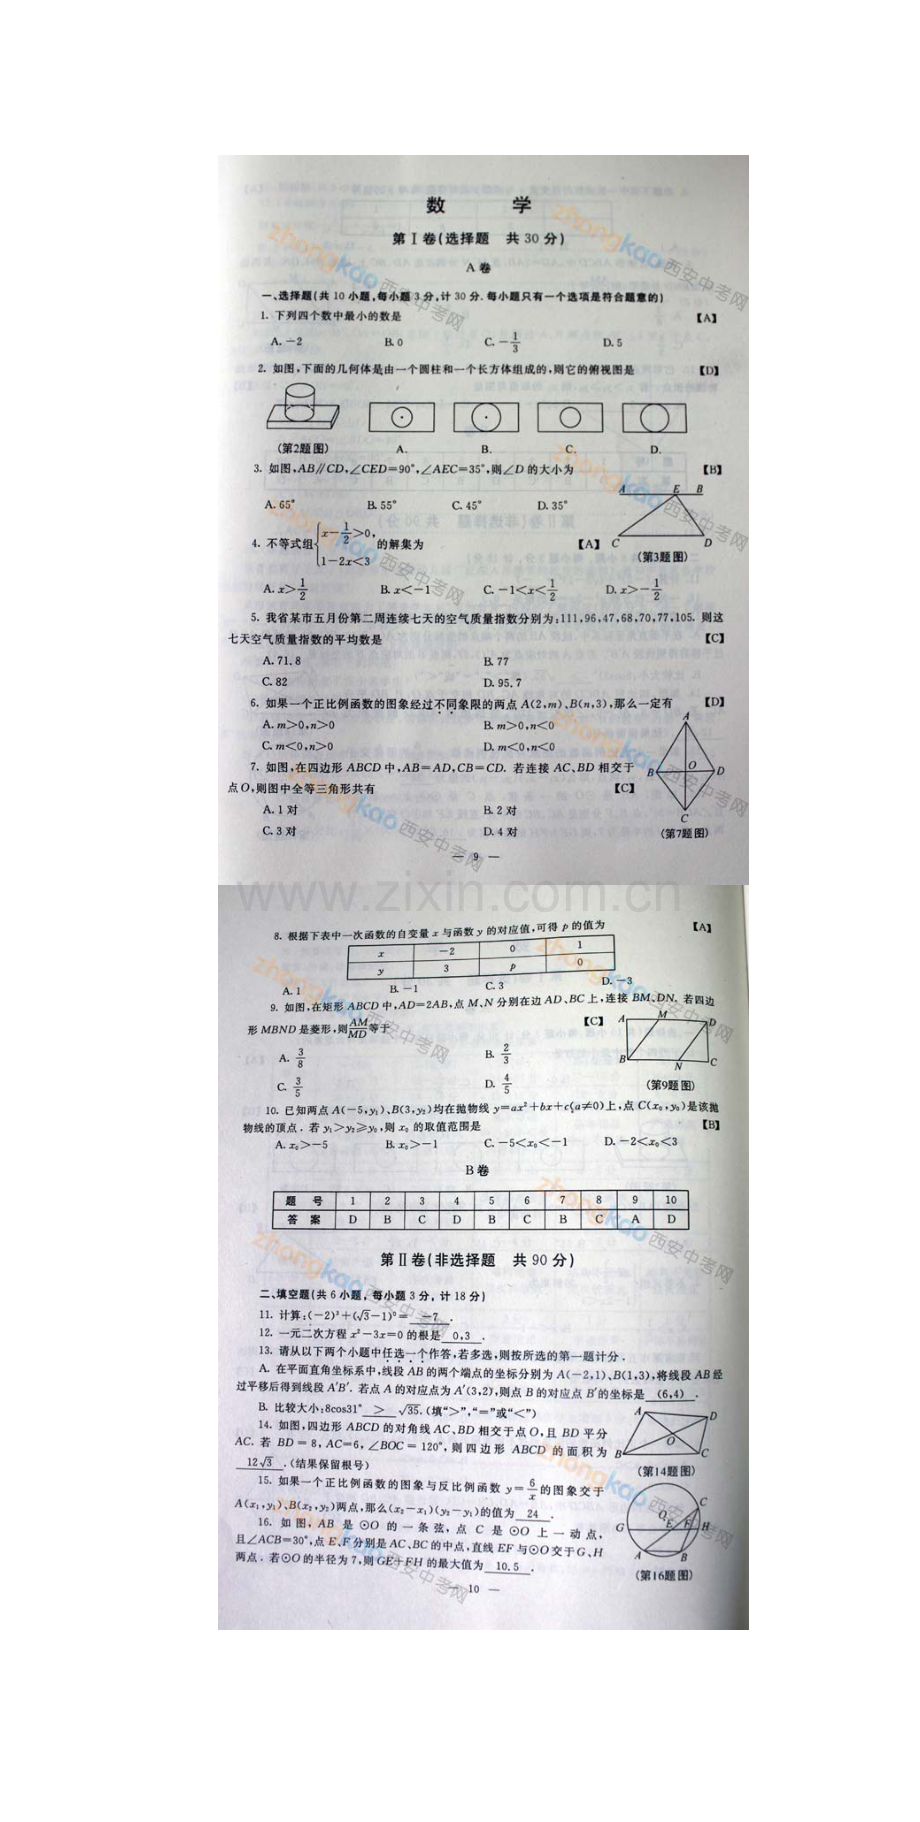 数 学
第Ⅰ卷(选择题 共30分)
A卷
一、选择题(共10小题,每小题3分,计30分.每小题只有一个选项是符合题意的)
1. 下列四个数中最小的数是 【A】
A. −2 B. 0 C. −1/3 D. 5
2. 如图,下面的几何体是由一个圆柱和一个长方体组成的,则它的俯视图是 【D】
(第2题图) A. B. C. D.
3. 如图,AB∥CD,∠CED=90°,∠AEC=35°,则∠D的大小为 【B】
A. 65° B. 55° C. 45° D. 35°
A E B
C D
(第3题图)
4. 不等式组{x−1/2>0, 1−2x<3 的解集为 【A】
A. x>1/2 B. x<−1 C. −1<x<1/2 D. x>−1/2
5. 我省某市五月份第二周连续七天的空气质量指数分别为:111,96,47,68,70,77,105. 则这
七天空气质量指数的平均数是 【C】
A. 71.8 B. 77
C. 82 D. 95.7
6. 如果一个正比例函数的图象经过不同象限的两点A(2,m)、B(n,3),那么一定有 【D】
A. m>0,n>0 B. m>0,n<0
C. m<0,n>0 D. m<0,n<0
7. 如图,在四边形ABCD中,AB=AD,CB=CD. 若连接AC、BD相交于
点O,则图中全等三角形共有 【C】
A. 1对 B. 2对
C. 3对 D. 4对
A
B O D
C
(第7题图)
— 9 —
www.zixin.com.cn
8. 根据下表中一次函数的自变量x与函数y的对应值,可得p的值为 【A】
x −2 0 1
y 3 p 0
A. 1 B. −1 C. 3 D. −3
9. 如图,在矩形ABCD中,AD=2AB,点M、N分别在边AD、BC上,连接BM、DN. 若四边
形MBND是菱形,则AM/MD等于 【C】
A. 3/8 B. 2/3
C. 3/5 D. 4/5
A M D
B N C
(第9题图)
10. 已知两点A(−5,y₁)、B(3,y₂)均在抛物线y=ax²+bx+c(a≠0)上,点C(x₀,y₀)是该抛
物线的顶点. 若y₁>y₂≥y₀,则x₀的取值范围是 【B】
A. x₀>−5 B. x₀>−1 C. −5<x₀<−1 D. −2<x₀<3
B卷
题 号 1 2 3 4 5 6 7 8 9 10
答 案 D B C D B C B C A D
第Ⅱ卷(非选择题 共90分)
二、填空题(共6小题,每小题3分,计18分)
11. 计算:(−2)³+(√3−1)⁰= −7 .
12. 一元二次方程x²−3x=0的根是 0,3 .
13. 请从以下两个小题中任选一个作答,若多选,则按所选的第一题计分.
A. 在平面直角坐标系中,线段AB的两个端点的坐标分别为A(−2,1)、B(1,3),将线段AB经
过平移后得到线段A′B′. 若点A的对应点为A′(3,2),则点B的对应点B′的坐标是 (6,4) .
B. 比较大小:8cos31° > √35.(填“>”,“=”或“<”)
14. 如图,四边形ABCD的对角线AC、BD相交于点O,且BD平分
AC. 若BD=8,AC=6,∠BOC=120°,则四边形ABCD的面积为
12√3 .(结果保留根号)
A D
O
B C
(第14题图)
15. 如果一个正比例函数的图象与反比例函数y=6/x的图象交于
A(x₁,y₁)、B(x₂,y₂)两点,那么(x₂−x₁)(y₂−y₁)的值为 24 .
16. 如图,AB是⊙O的一条弦,点C是⊙O上一动点,
且∠ACB=30°,点E、F分别是AC、BC的中点,直线EF与⊙O交于G、H
两点. 若⊙O的半径为7,则GE+FH的最大值为 10.5 .
C
O
G E F H
A B
(第16题图)
— 10 —
zhongkao西安中考网